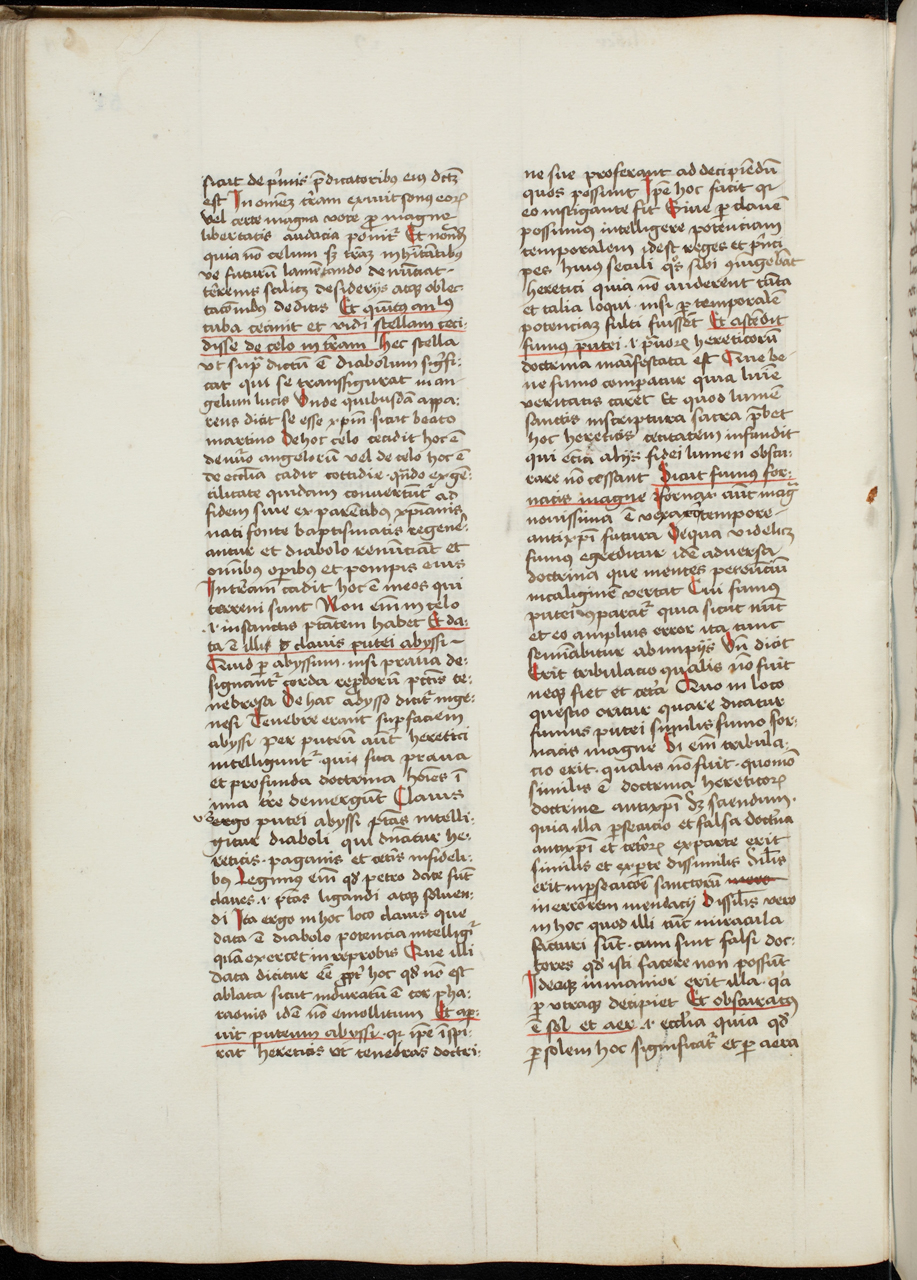 sicut de p̄mis p̄dicatoribꝯ eiꝯ dc̄tꝫ
est In om̄eꝫ t̄ram exiuit sonꝯ eoꝝ
vel certe magna voce ꝑ magne
libertatis audacia ponit᷑ Et nond
quia nō celum sꝫ t̄raꝫ in hītātibꝯ
ve futurū lamētando denūciat
t̄renis scilicꝫ desiderijs atqꝫ oblec
tacōnibꝯ deditis Et quītꝯ anlꝯ
tuba cecinit et vidi stellam ceci⸗
disse de celo in t̄ram Hec stella
vt sup̄ dictū ē diabolum siḡfi⸗
cat qui se transfigurat in an⸗
gelum lucis Vnde quibusdā appa⸗
rens dicit se esse xp̄m sicut beato
martino De hoc celo cecidit hoc ē
de nūo angelorū vel de celo hoc ē
de ecclīa cadit cottidie qn̄do ex gē⸗
tilitate quidam conuertūt᷑ ad
fidem siue ex parētibꝯ xp̄ianis
nati fonte baptismatis regene⸗
antur et diabolo renūciāt et
om̄ibꝯ oꝑibꝯ et pompis eius
In terram cadit hoc ē in eos qui
terreni sunt Non em̄ in celo
.i. in sanctis ptātem habet Et da⸗
ta ē illi clauis putei abyssi
Quid ꝑ abyssum nisi praua de⸗
signant᷑ corda rep̄borū pctīs te⸗
nebrosa De hac abysso dicit᷑ inge⸗
nesi Tenebre erant suꝑ faciem
abyssi Per puteū aūt heretici
intelligunt᷑ qui sua praua
et profunda doctrina hoīes ī
ima t̄re demergūt Clauis
ergo putei abyssi ptās intelli⸗
gitur diaboli qui dn̄atur he⸗
reticis paganis et cetīs infideli⸗
bꝯ Legimus em̄ qd̄ petro date sūt
claues .i. ptās ligandi atqꝫ soluen⸗
di Ita ergo in hoc loco clauis que
data ē diabolo potencia intelligi᷑
quā exercet in reprobis Que illi
data dicitur eē ꝓpt̄ hoc qd̄ nō est
ablata sicut induratū ē cor pha⸗
raonis idē nō emollitum Et ap⸗
uit puteum abyssi qr ip̄e īspi⸗
rat hereticis vt tenebras doctri⸗
ne sue proferant ad decipiēdū
quos possunt Ip̄e hoc facit qr
eo instigante fit Siue ꝑ clauē
possumus intelligere potenciam
temporalem id est reges et p̄nci
pes huius seculi q̄s sibi ꝯiūgebāt
heretici quia nō auderent tāta
et talia loqui nisi ꝑ temporalē
potenciaꝫ fulti fuissēt Et ascēdit
fumus putei .i. prauoꝝ hereticorū
doctrina manifestata est Que be⸗
ne fumo comparatur quia lumē
veritatis caret Et quod lumē
sanctis in scriptura sacra p̄bet
hoc hereticis cecitatem infundit
qui eciā alijs fidei lumen obscu⸗
rare nō cessant Sicut fumus for⸗
nacis magne Fornax aūt maḡ
nouissima ē vexacō tempore
antixp̄i futura De qua videlicꝫ
fumus egreditur idē aduersa
doctrina que mentes peccūciū
in caliginē vertat Cui fumus
putei ꝯparat᷑ quia sicut nūc
et eo amplius error ita tunc
seminabitur ab impijs Vn̄ dicit
Erit tribulacio qualis nō fuit
neqꝫ fiet et cetā Quo in loco
questio oritur quare dicatur
fumus putei similis fumo for⸗
nacis magne Si em̄ tribula⸗
cio erit qualis nō fuit quomō
similis ē doctrina hereticoꝝ
doctrine antixp̄i Sꝫ sciendum
quia illa ꝑsecucio et falsa doctīa
antixp̄i et cetoꝝ ex parte erit
similis et ex ꝑte dissimilis Silīs
erit in ꝑsecucōe sanctorū
in errorem mendacij Dissīlis vero
in hoc quod illi tūc miracula
facturi sūt cum sint falsi doc⸗
tores qd̄ isti facere non possūt
Ideoqꝫ in maior erit illa qa
ꝑ vtraqꝫ decipiet Et obscuratꝯ
ē sol et aer .i. ecclīa quia qd̄
ꝑ solem hoc significat᷑ et ꝑ aera